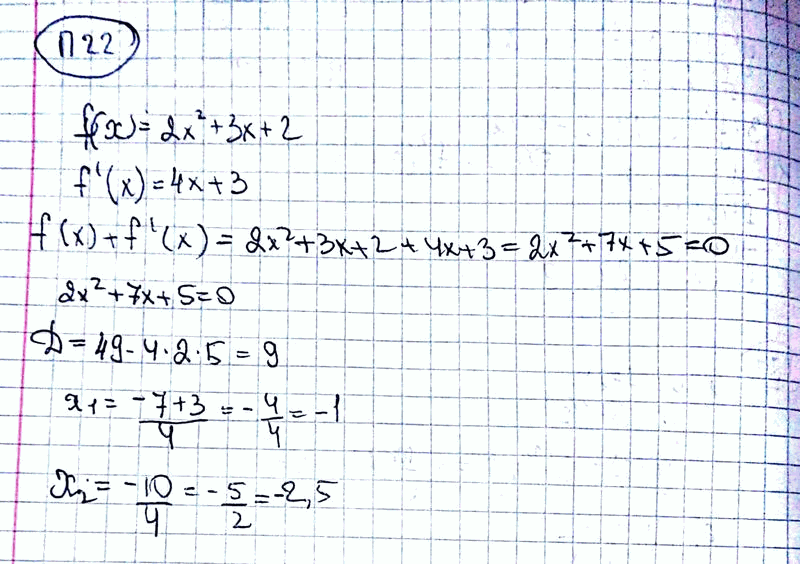 П22
f(x) = 2x² + 3x + 2
f'(x) = 4x + 3
f(x) + f'(x) = 2x² + 3x + 2 + 4x + 3 = 2x² + 7x + 5 = 0
2x² + 7x + 5 = 0
D = 49 - 4 · 2 · 5 = 9
x₁ = (-7 + 3)/4 = -4/4 = -1
x₂ = -10/4 = -5/2 = -2,5